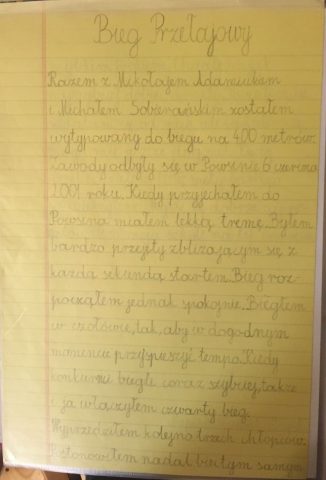 Bieg Przełajowy
Razem z Mikołajem Adamiukiem
i Michałem Soberańskim zostałem
wytypowany do biegu na 400 metrów.
Zawody odbyły się w Powsinie 6 czerwca
2001 roku. Kiedy przyjechałem do
Powsina miałem lekką tremę. Byłem
bardzo przejęty zbliżającym się z
każdą sekundą startem. Bieg roz-
począłem jednak spokojnie. Biegłem
w czołówce, tak, aby w dogodnym
momencie przyśpieszyć tempo. Kiedy
konkurenci biegli coraz szybciej, także
i ja włączyłem czwarty bieg.
Wyprzedziłem kolejno trzech chłopców.
Postanowiłem nadal biec tym samym